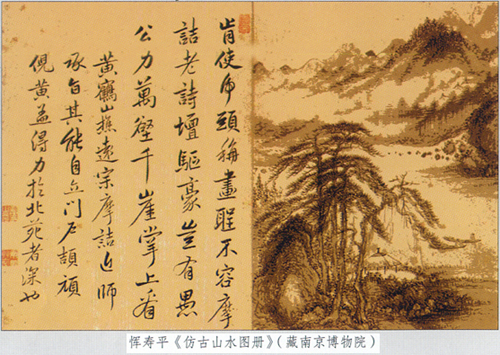 肯使頭稱畫聖不容摩
詰老詩壇驅豪豈有愚
公力萬壑千崖掌上看
黃鶴山樵遠宗摩詰近師
承旨其能自立門戶頡頏
倪黃益得力於北苑者深也
恽寿平《仿古山水图册》(藏南京博物院)